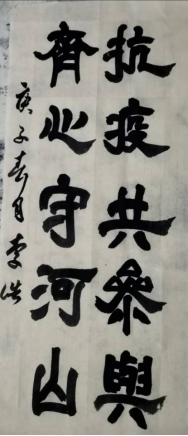 抗疫共參與
齊心守河山
庚子春月李浩